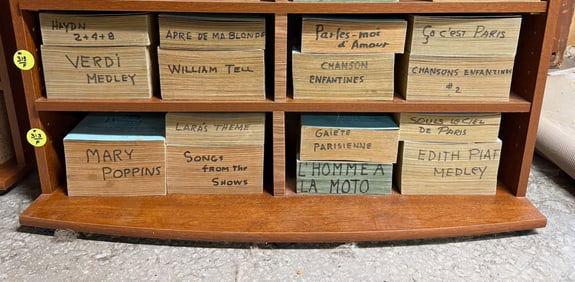 HAYDN
2+4+8
VERDI
MEDLEY
APRE DE MA BLONDE
WILLIAM TELL
Parles-moi
d'Amour
CHANSON
ENFANTINES
Ça c'est PARIS
CHANSONS ENFANTINES
#2
MARY
POPPINS
LARA'S THEME
SONGS
FROM THE
SHOWS
GAIETÉ
PARISIENNE
L'HOMME A
LA MOTO
SOUS LE CIEL
DE PARIS
EDITH PIAF
MEDLEY